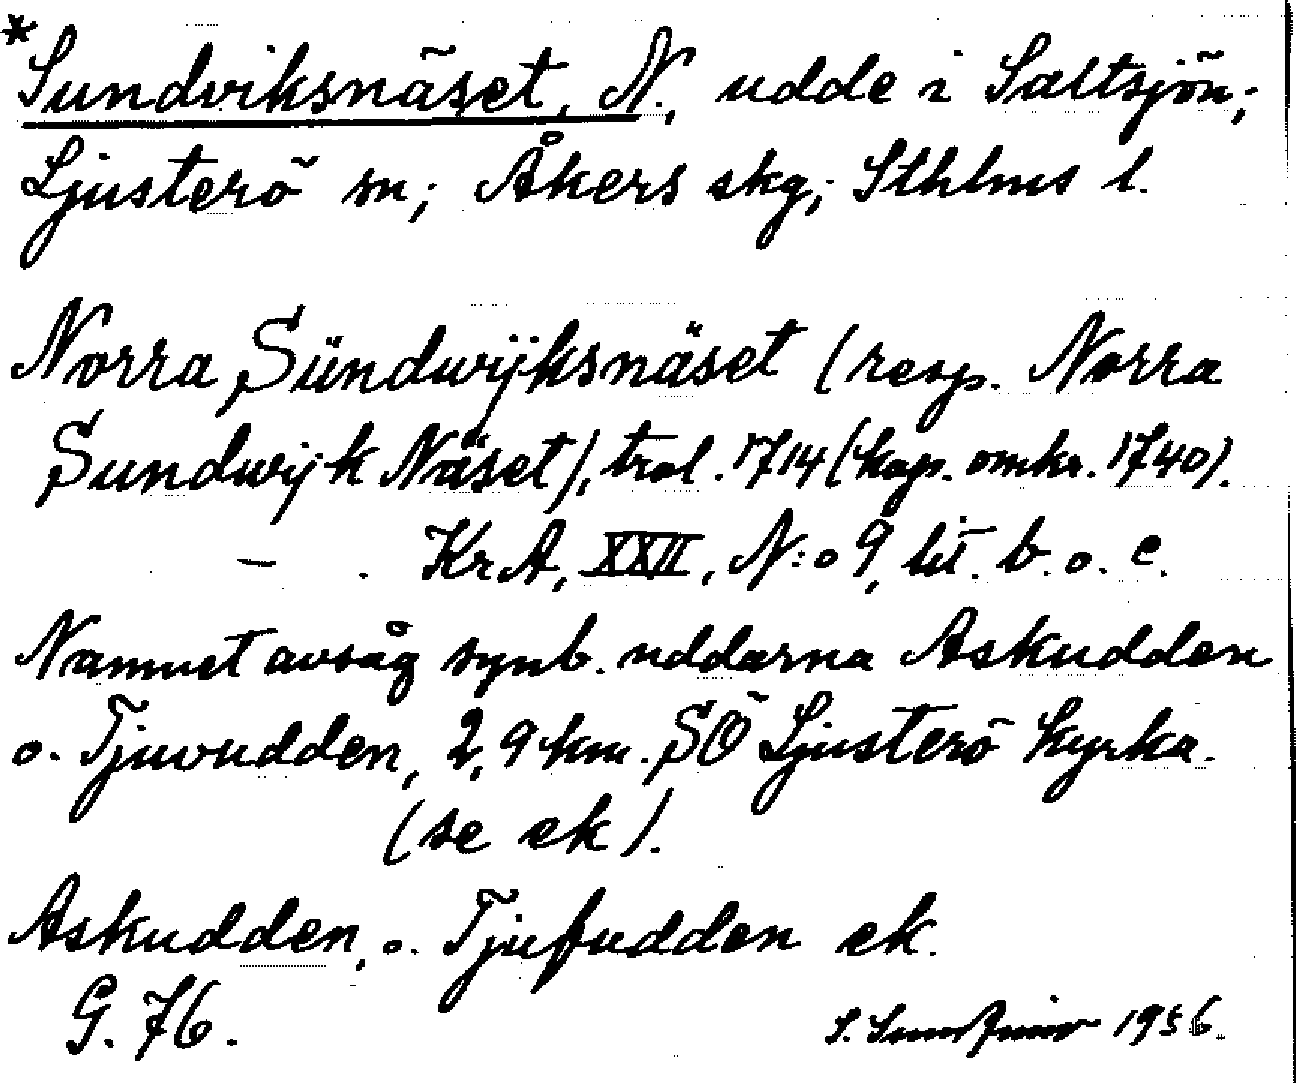 *Sundviksnäset, N., udde i Saltsjön;
Ljusterö sn; Åkers skg; Sthlms l.
Norra Sündwijksnäset (resp. Norra
Sundwijk Näset), trol. 1714 (kop. omkr. 1740).
— . KrA, XXII, N:o 9, lit. b. o. c.
Namnet avsåg synb. uddarna Askudden
o. Tjuvudden, 2,9 km. SÖ Ljusterö kyrka.
(se ek).
Askudden, o. Tjufudden ek.
G. 76.
S. 1956.